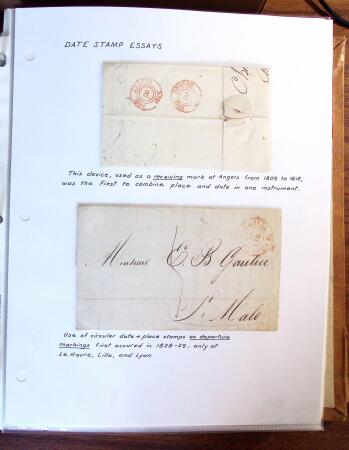 DATE STAMP ESSAYS
ANGERS
8
ANGERS
8
This device, used as a receiving mark at Angers from 1809 to 1818,
was the first to combine place and date in one instrument.
Monsieur E. B. Gautier
St Malo
Use of circular date + place stamps as departure
markings first occured in 1828-29, only at
Le Havre, Lille, and Lyon.